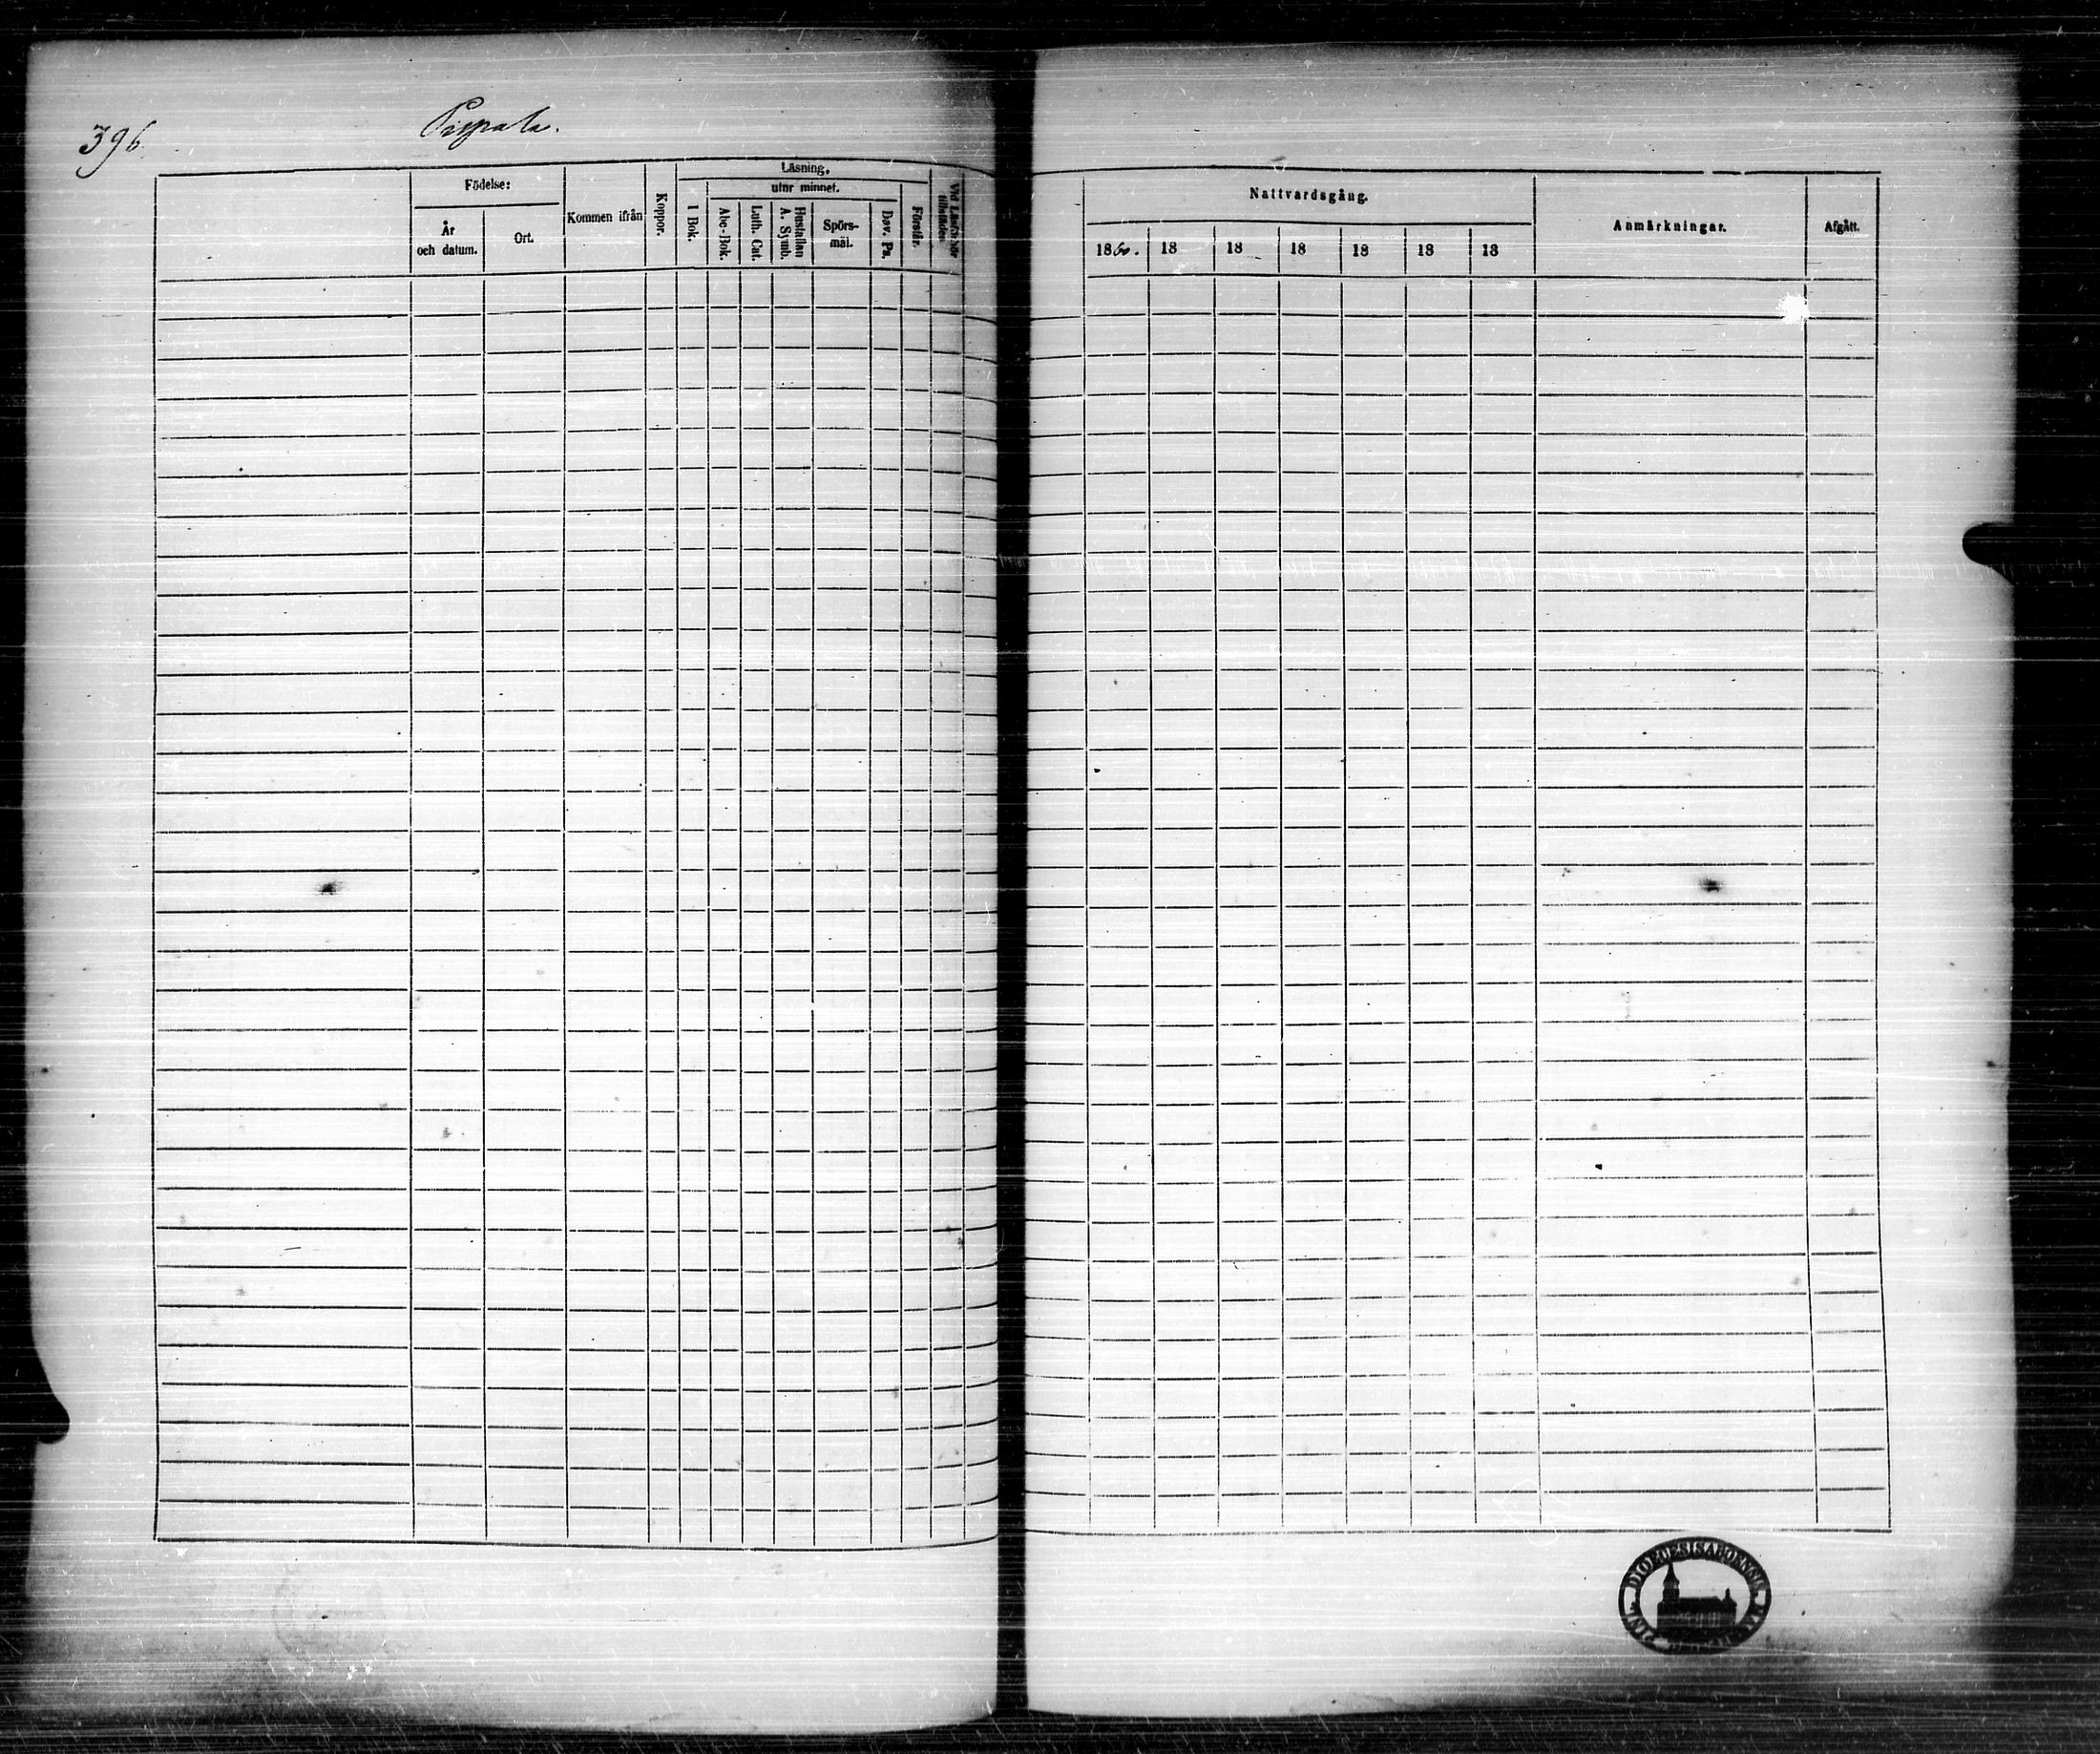 396.
Pispala.
Födelse:
År
och datum.
Ort.
Kommen ifrån
Koppor.
Läsning,
utur minnet.
I Bok.
Abc-Bok.
Luth. Cat.
Hustaflan
A. Symb.
Spörs-
mål.
Dav. Ps.
Förstår.
Vid Läseförhör
tillstädes.
Nattvardsgång.
1860. 18 18 18 18 18 18
Anmärkningar.
Afgått.
DIOECESIS ABOENSIS